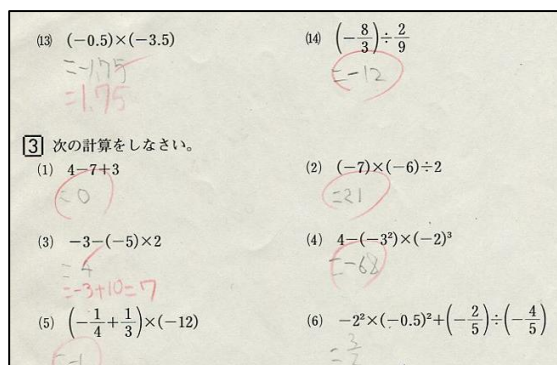 (13) (−0.5)×(−3.5)
=-1.75
=1.75
(14) (−8/3)÷2/9
=-12
3 次の計算をしなさい。
(1) 4−7+3
=0
(2) (−7)×(−6)÷2
=21
(3) −3−(−5)×2
=4
=-3+10=7
(4) 4−(−3²)×(−2)³
=-68
(5) (−1/4+1/3)×(−12)
=-1
(6) −2²×(−0.5)²+(−2/5)÷(−4/5)
=3/2